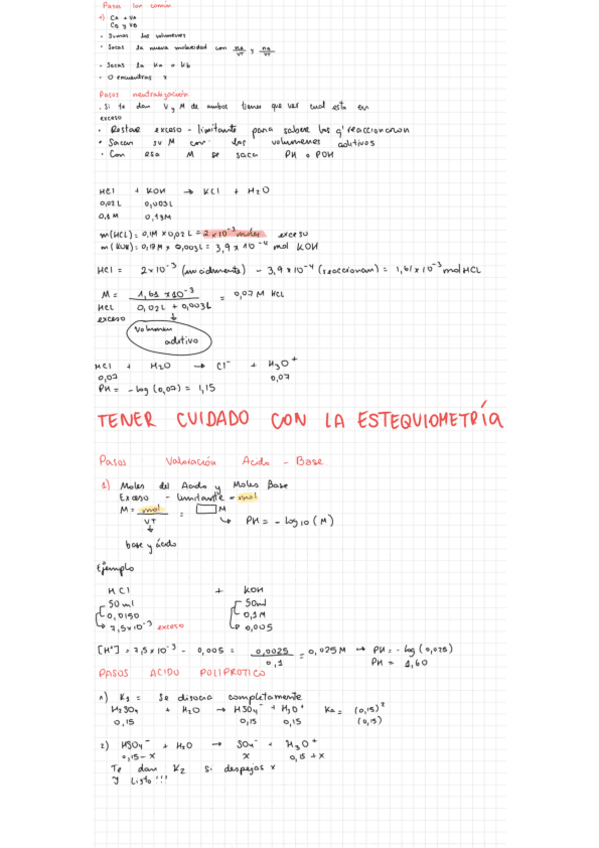 Pasos Ion común
1) CA + VA
CB y VB
• Sumas los volumenes
• Sacas la nueva molaridad con nA/VT y nB/VT
• Sacas la Ka o Kb
• O encuentras x
Pasos neutralización
• Si te dan V y M de ambos tienes que ver cual esta en
exceso
• Restar exceso - limitante para saber los q' reaccionaron
• Sacar su M con los volumenes aditivos
• Con esa M se saca PH o POH
HCl + KOH → KCl + H2O
0,02 L 0,003L
0,1 M 0,13M
m(HCl): 0,1M × 0,02 L = 2 × 10⁻³ moles exceso
m(KOH): 0,13M × 0,003L = 3,9 × 10⁻⁴ mol KOH
HCl = 2×10⁻³ (inicialmente) - 3,9 × 10⁻⁴ (reaccionan) = 1,61 × 10⁻³ mol HCL
M = 1,61 × 10⁻³ / 0,02 L + 0,003L = 0,07 M HCl
HCl
exceso
↓
Volumen
aditivo
HCl + H2O → Cl⁻ + H3O⁺
0,07 0,07
PH = - log (0,07) = 1,15
TENER CUIDADO CON LA ESTEQUIOMETRÍA
Pasos Valoración Acido - Base
1) Moles del Acido y Moles Base
Exceso - limitante = mol
M = mol / VT = □ M
↳ PH = - log10 (M)
↓
base y ácido
Ejemplo
HCl + KOH
50 ml 50ml
0,0150 0,1M
7,5×10⁻³ exceso 0,005
[H⁺] = 7,5 × 10⁻³ - 0,005 = 0,0025 / 0,1 = 0,025 M → PH = - log (0,025)
PH = 1,60
PASOS ACIDO POLIPROTICO
1) K1 = Se disocia completamente
H2SO4 + H2O → HSO4⁻ + H3O⁺ Ka = (0,15)² / (0,15)
0,15 0,15 0,15
2) HSO4⁻ + H2O → SO4⁻ + H3O⁺
0,15 - x x 0,15 + x
Te dan K2 si despejas x
Y listo!!!